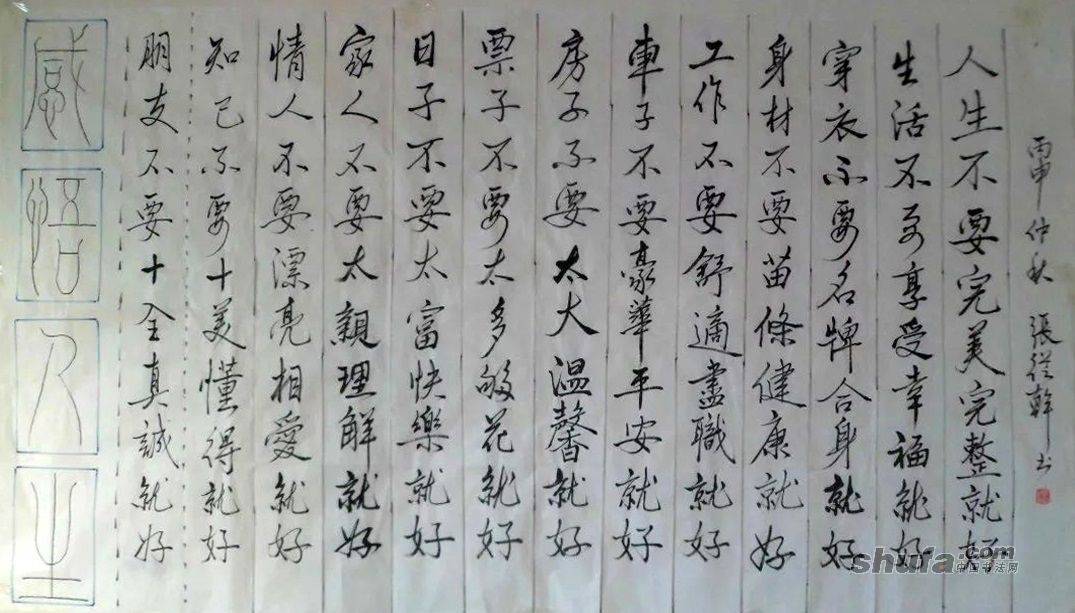 感悟人生
朋友不要十全真誠就好
知己不要十美懂得就好
情人不要漂亮相愛就好
家人不要太親理解就好
日子不要太富快樂就好
票子不要太多够花就好
房子不要太大温馨就好
車子不要豪華平安就好
工作不要舒適盡職就好
身材不要苗條健康就好
穿衣不要名牌合身就好
生活不要享受幸福就好
人生不要完美完整就好
丙申仲秋 張從幹书
shufa.com
中国书法网